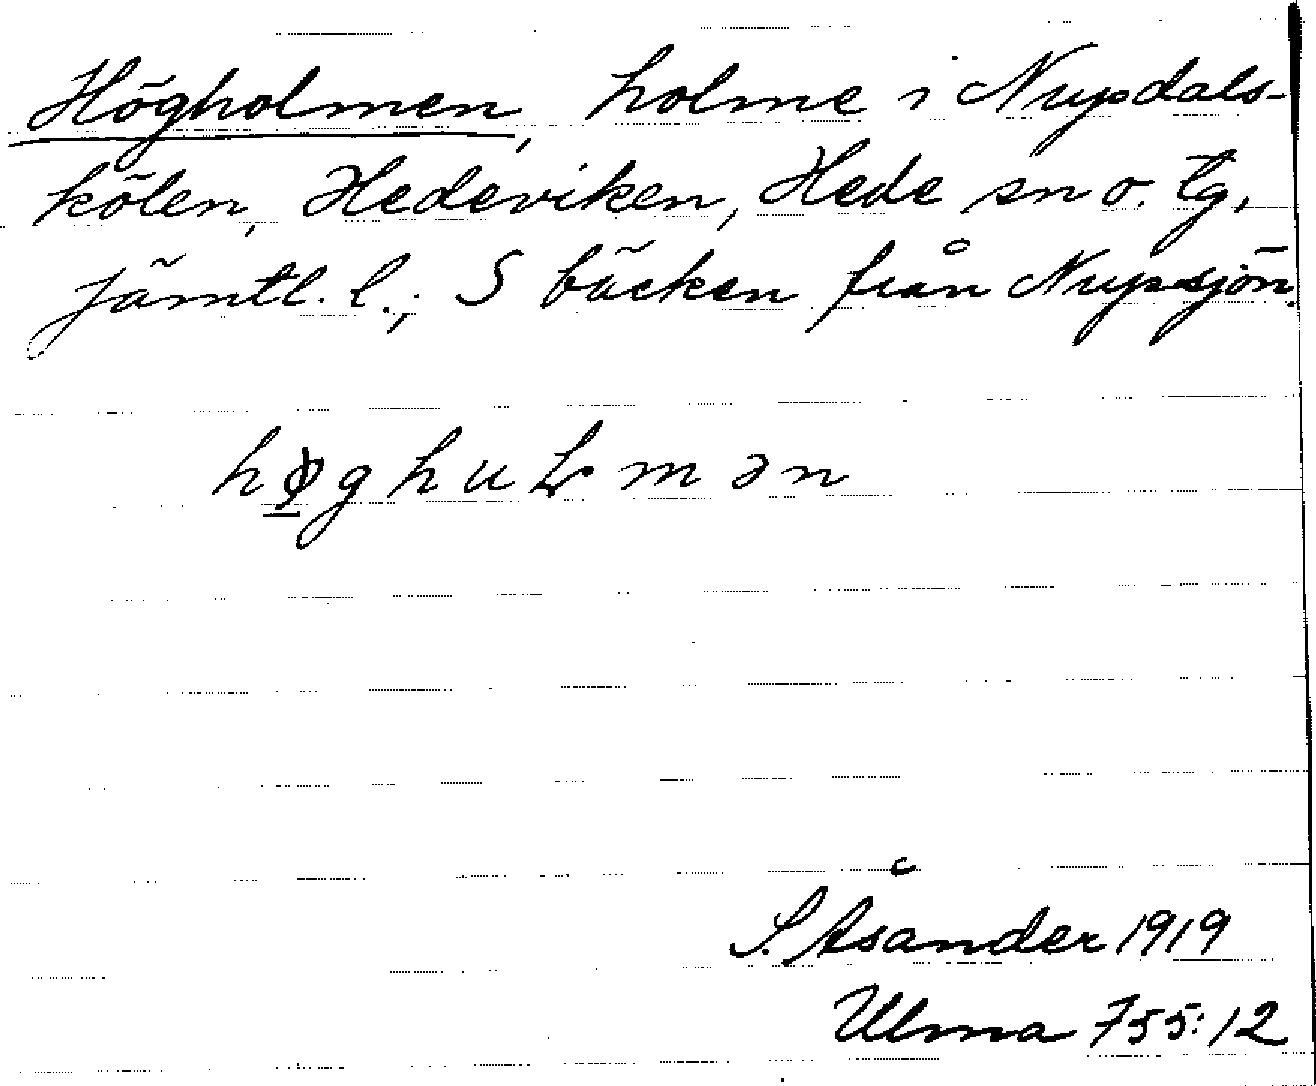 Högholmen, holme i Nypdals-
kölen, Hedeviken, Hede sn o. tg,
Jämtl. l.; S bäcken från Nypsjön.
høghuḷmən
S. Åsander 1919
Ulma 755:12